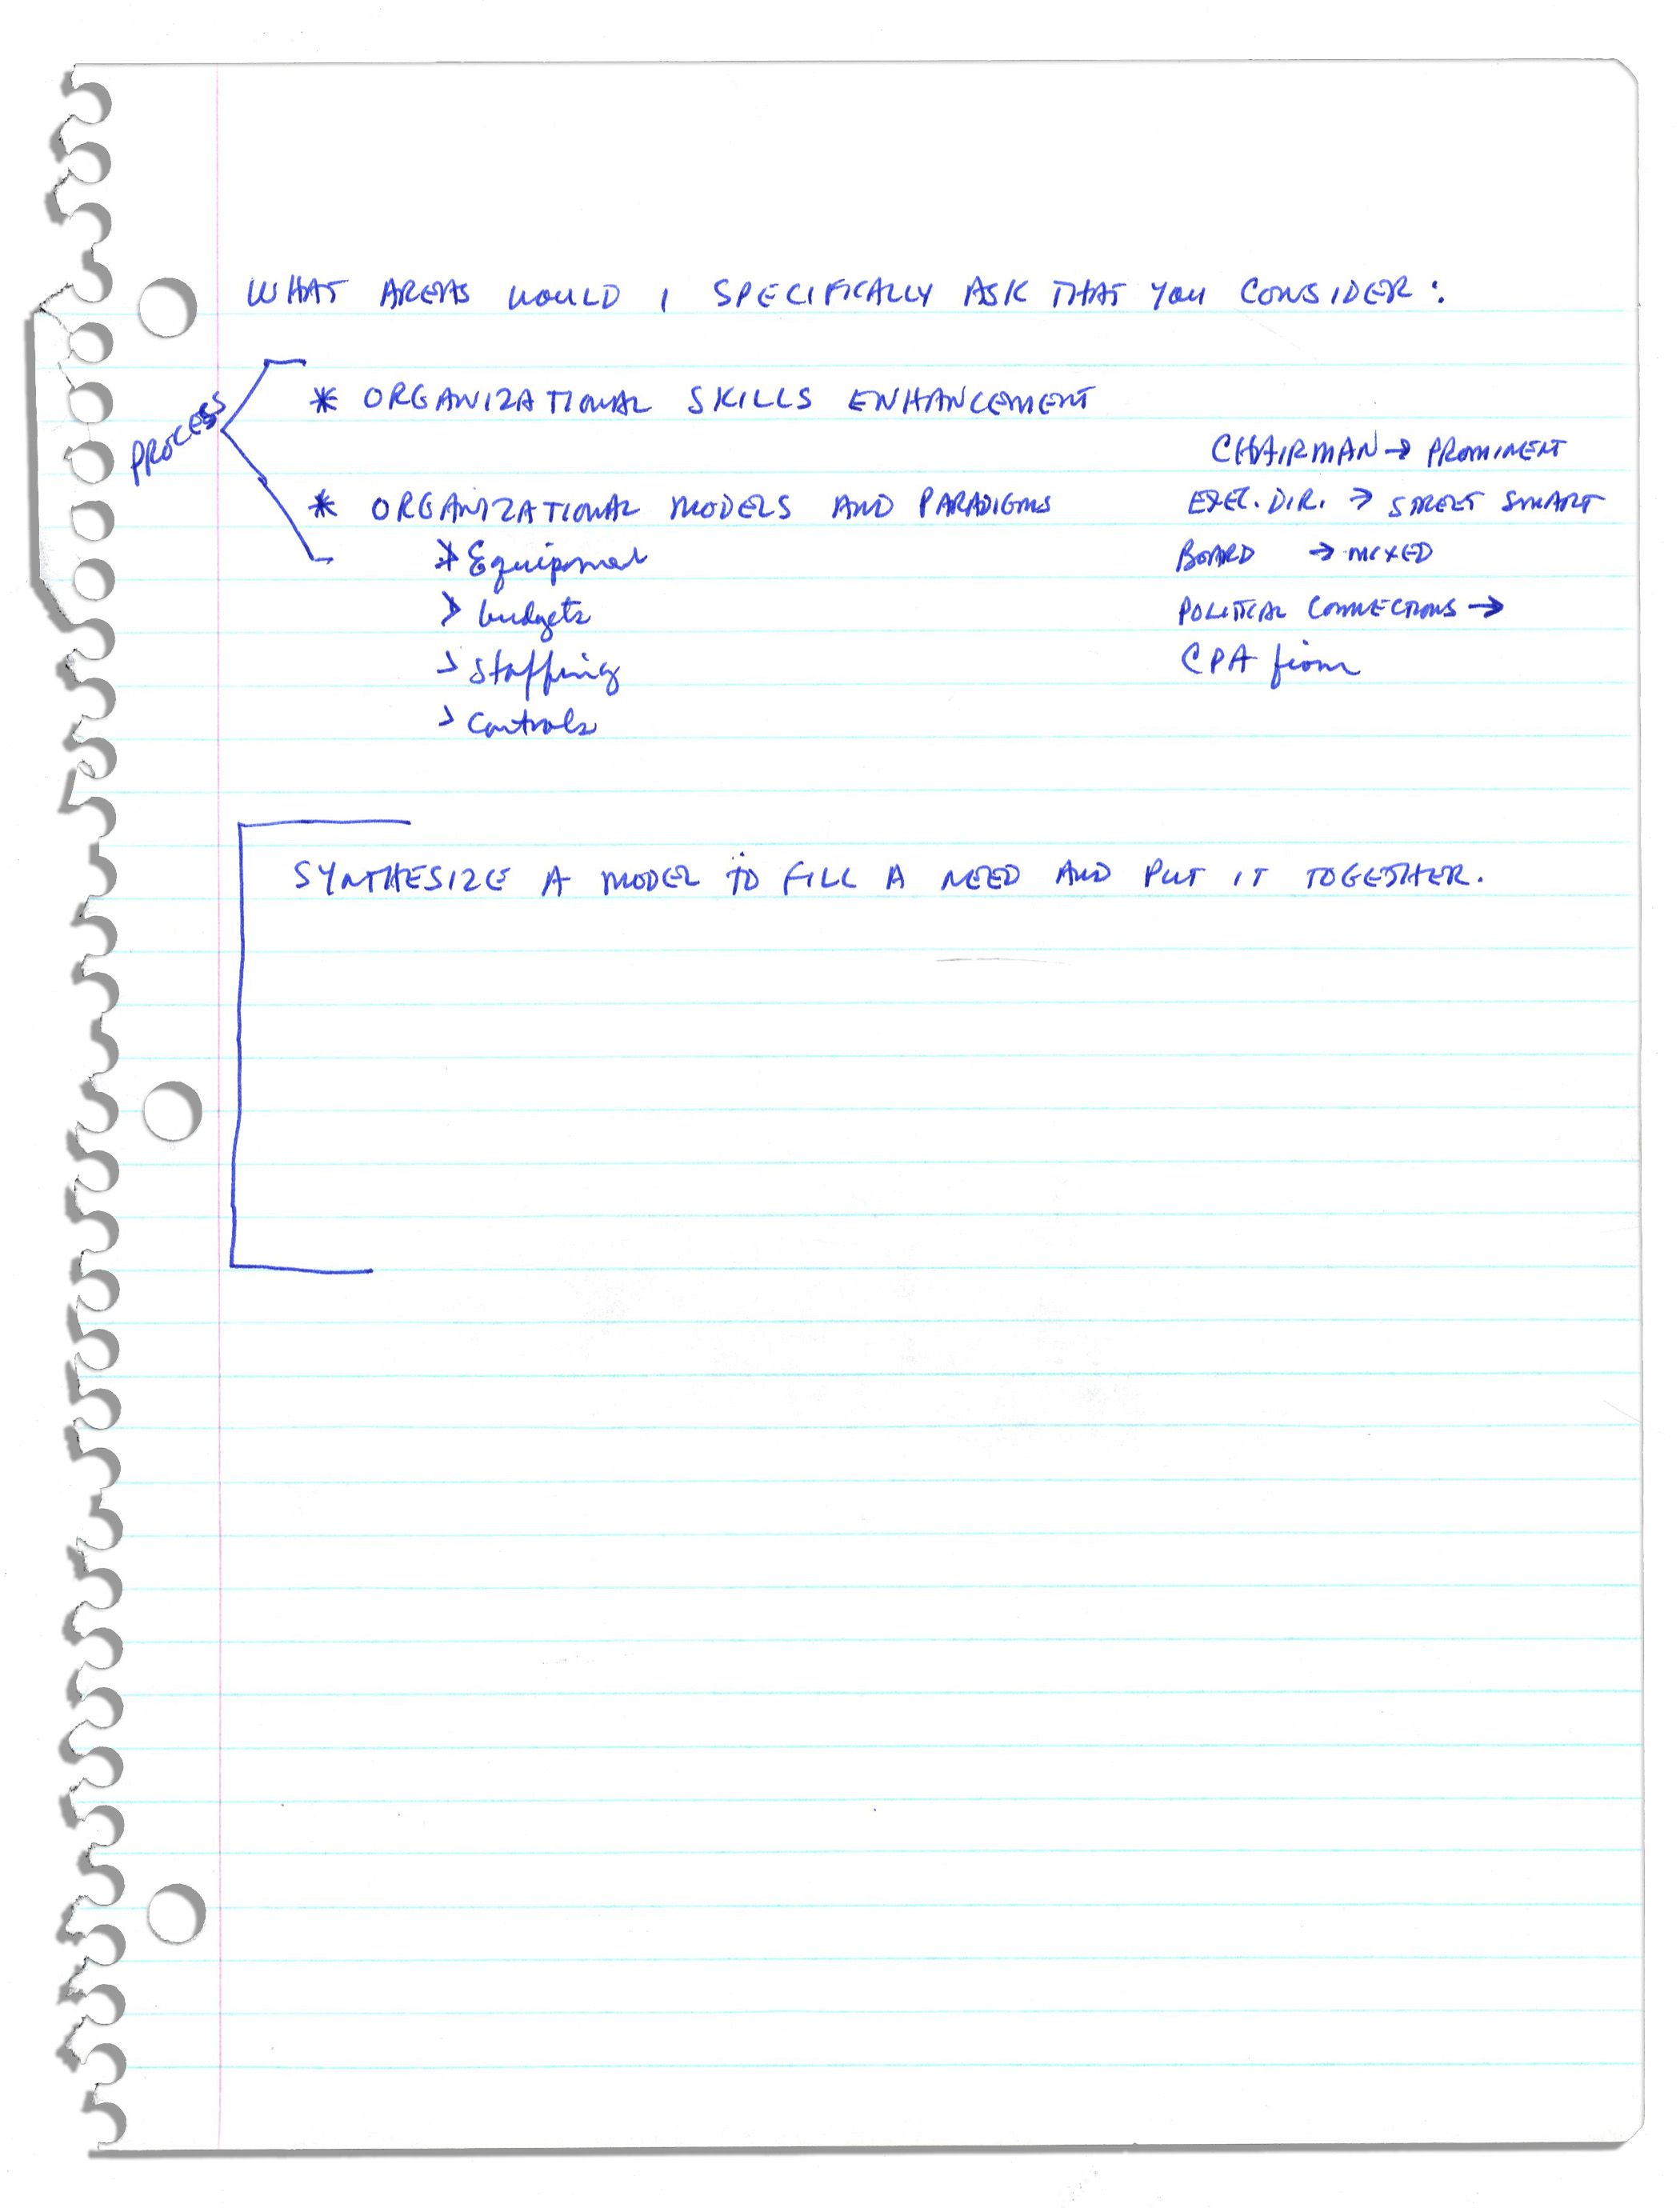 WHAT AREAS WOULD I SPECIFICALLY ASK THAT YOU CONSIDER:
PROCESS
* ORGANIZATIONAL SKILLS ENHANCEMENT
* ORGANIZATIONAL MODELS AND PARADIGMS
> Equipment
> budgets
> Staffing
> Controls
CHAIRMAN → PROMINENT
EXEC. DIR. → STREET SMART
BOARD → MIXED
POLITICAL CONNECTIONS →
CPA firm
SYNTHESIZE A MODEL TO FILL A NEED AND PUT IT TOGETHER.